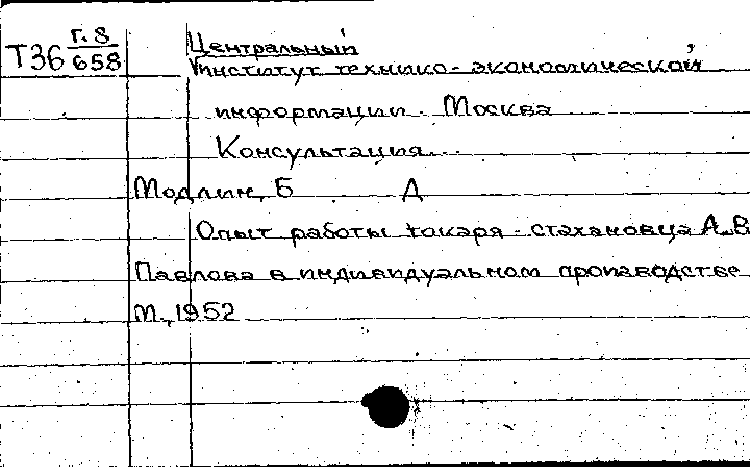 Т36 Г.8/658
Центральный
Институт технико-экономической
информации. Москва
Консультация...
Модлин, Б Д
Опыт работы токаря-стахановца А.В.
Павлова в индивидуальном производстве
М., 1952